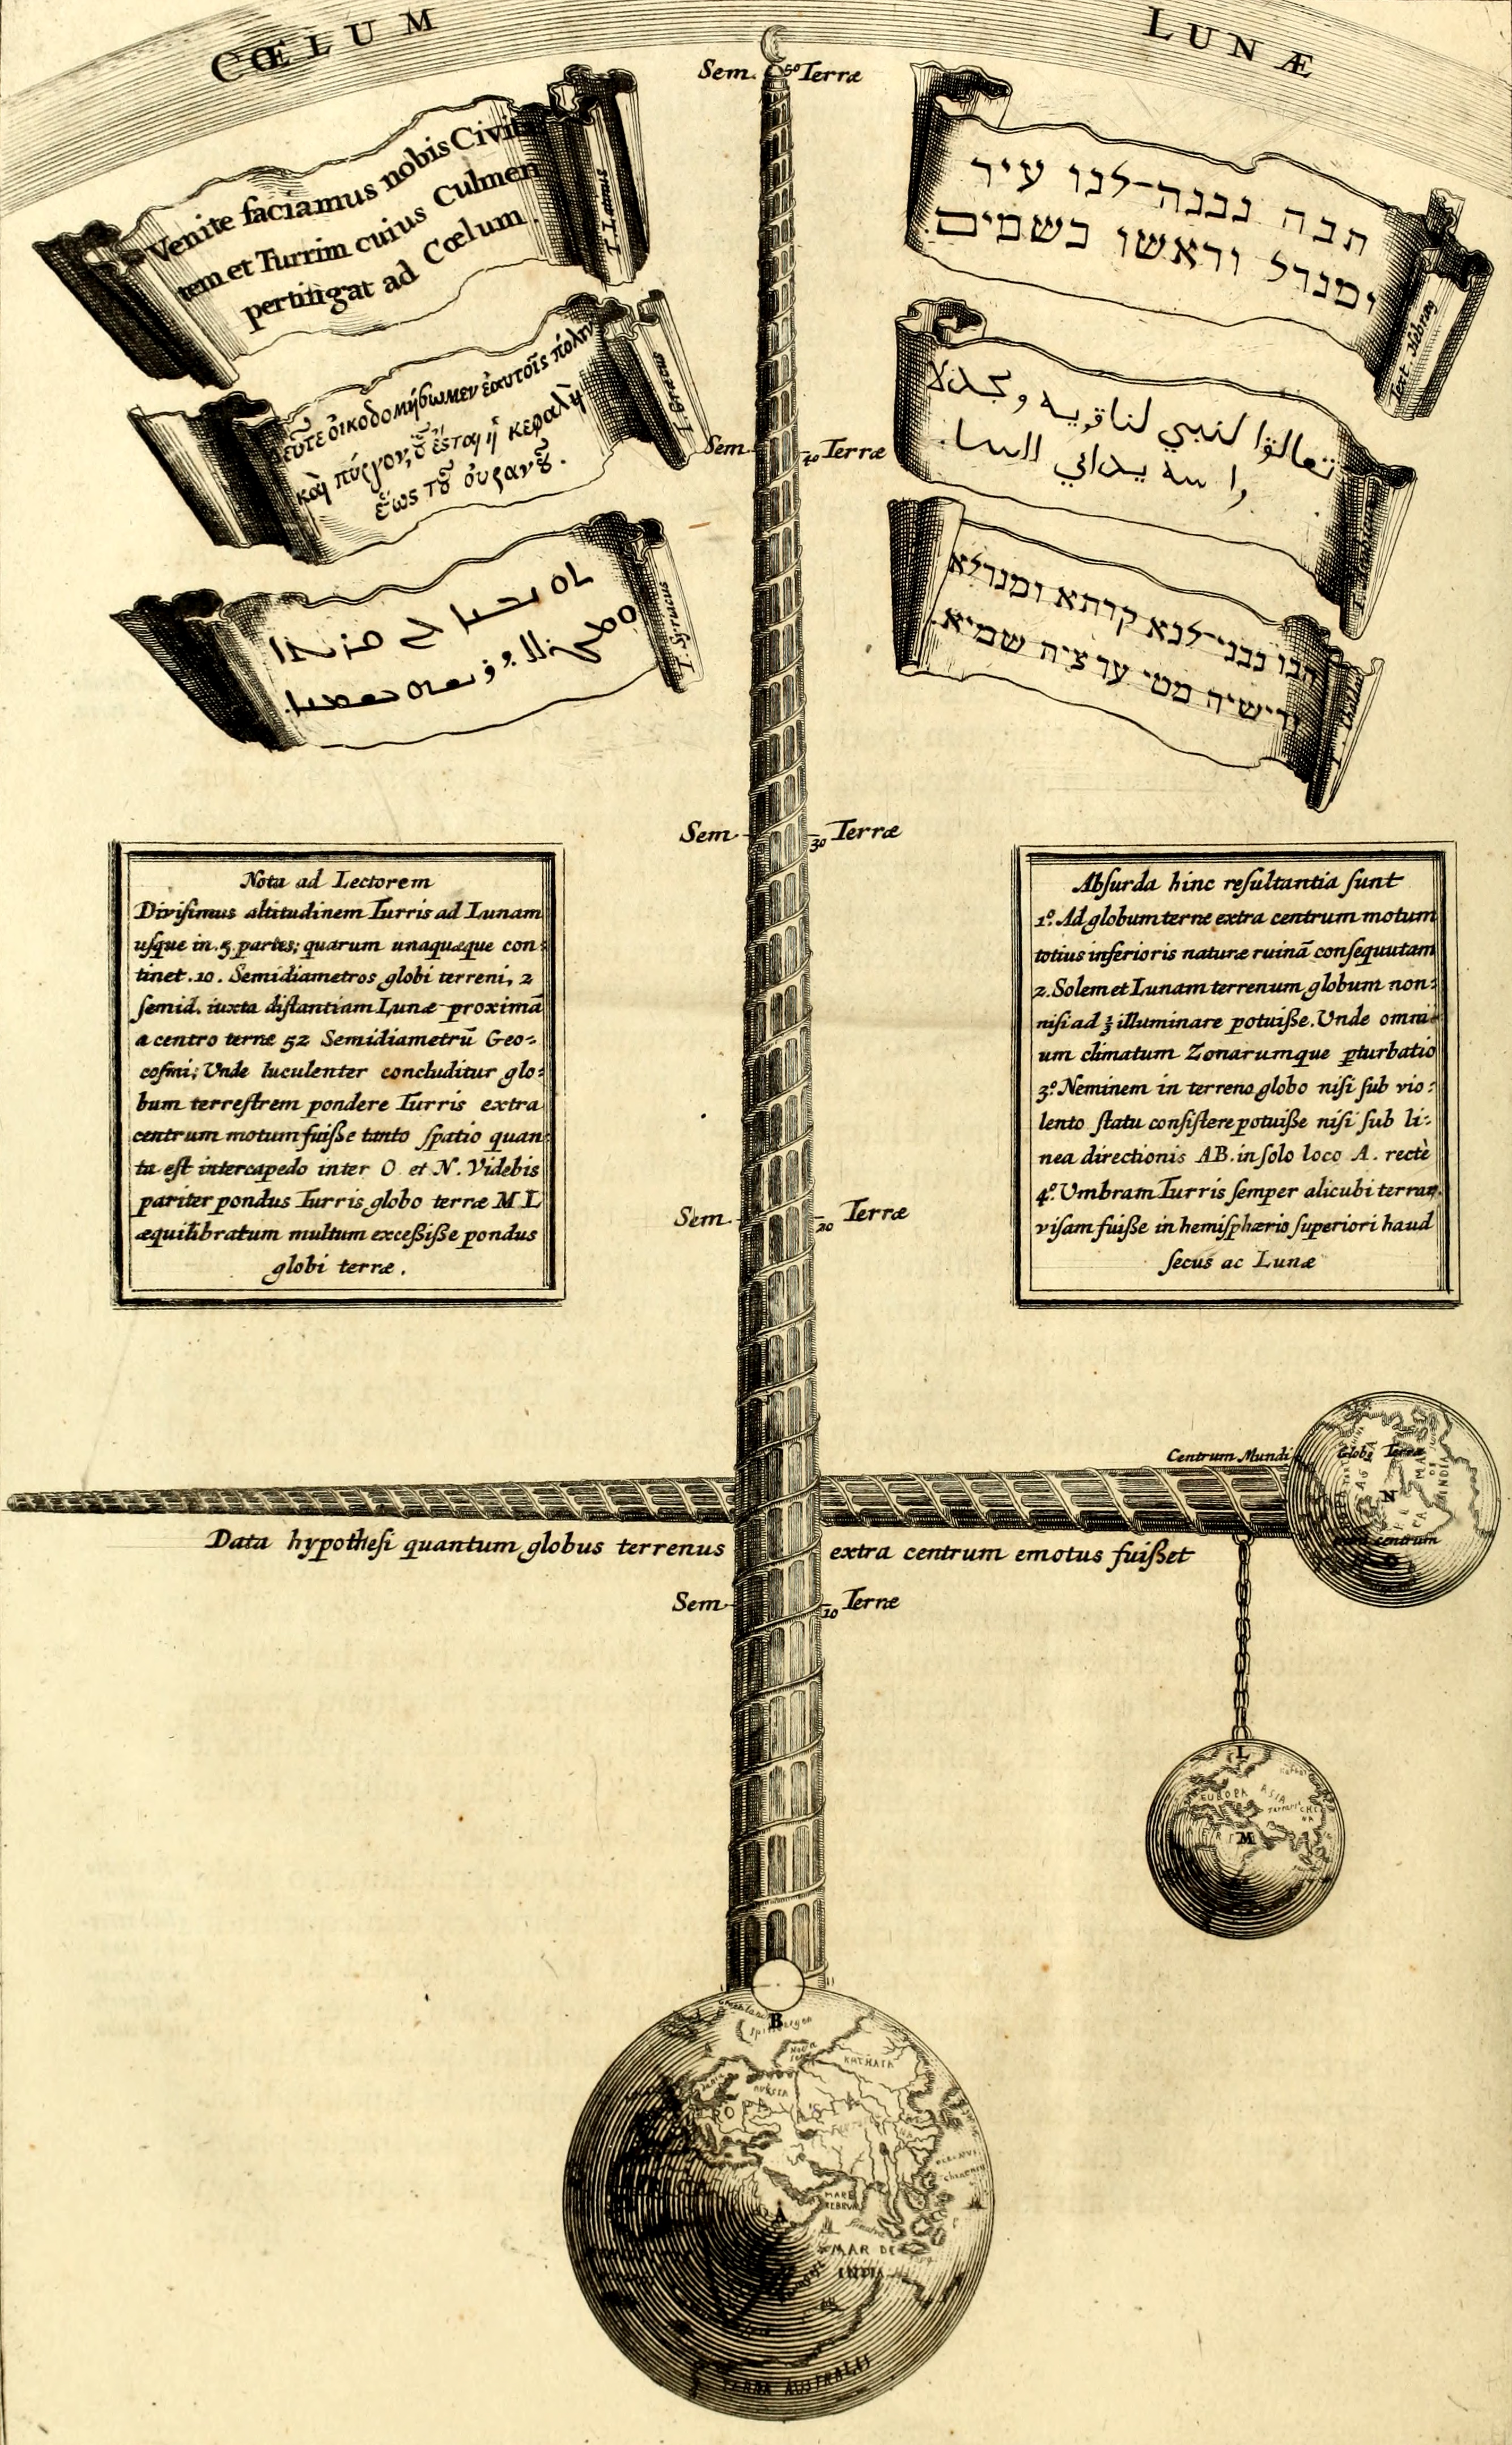 CŒLUM LUNÆ
Sem. 50 Terræ
Venite faciamus nobis Civita
tem et Turrim cuius Culmen
pertingat ad Cœlum.
T. Latinus
תבה נבנה־לנו עיר
ומגדל וראשו בשמים
Text. Hebræg
δεῦτε οἰκοδομήσωμεν ἑαυτοῖς πόλιν
καὶ πύργον, οὗ ἔσται ἡ κεφαλὴ
ἕως τοῦ οὐρανοῦ.
T. Græcus
Sem 40 Terræ
T. Syriacus
הבו נבני־לנא קרתא ומגדלא
ורישיה מטי עד ציה שמיא.
Sem 30 Terræ
Nota ad Lectorem
Divisimus altitudinem Turris ad Lunam
usque in 5 partes; quarum unaquæque con:
tinet 10. Semidiametros globi terreni, 2
semid. iuxta distantiam Lunæ proximā
a centro terræ 52 Semidiametrū Geo:
cosmi; Unde luculenter concluditur glo:
bum terrestrem pondere Turris extra
centrum motum fuiße tanto spatio quan:
ta est intercapedo inter O et N. Videbis
pariter pondus Turris globo terræ M L
æquilibratum multum exceßiße pondus
globi terræ.
Absurda hinc resultantia sunt
1º. Ad globum terræ extra centrum motum
totius inferioris naturæ ruinā consequutam
2. Solem et Lunam terrenum globum non:
nisi ad ⅓ illuminare potuiße. Unde omni:
um climatum Zonarumque pturbatio
3º. Neminem in terreno globo nisi sub vio:
lento statu consistere potuiße nisi sub li:
nea directionis AB. in solo loco A. rectè
4º. Umbram Turris semper alicubi terrarū
visam fuiße in hemisphærio superiori haud
secus ac Lunæ
Sem 20 Terræ
Centrum Mundi
Globg Terræ
MAR
DE
INDIA
N
centrum
Data hypothesi quantum globus terrenus extra centrum emotus fuißet
Sem 10 Terræ
L
EUROPA ASIA
M
B
Spitzbergen
RUSSIA
ROPA ASIA
MARE
A
MAR DE
INDIA
TERRA AUSTRALIS